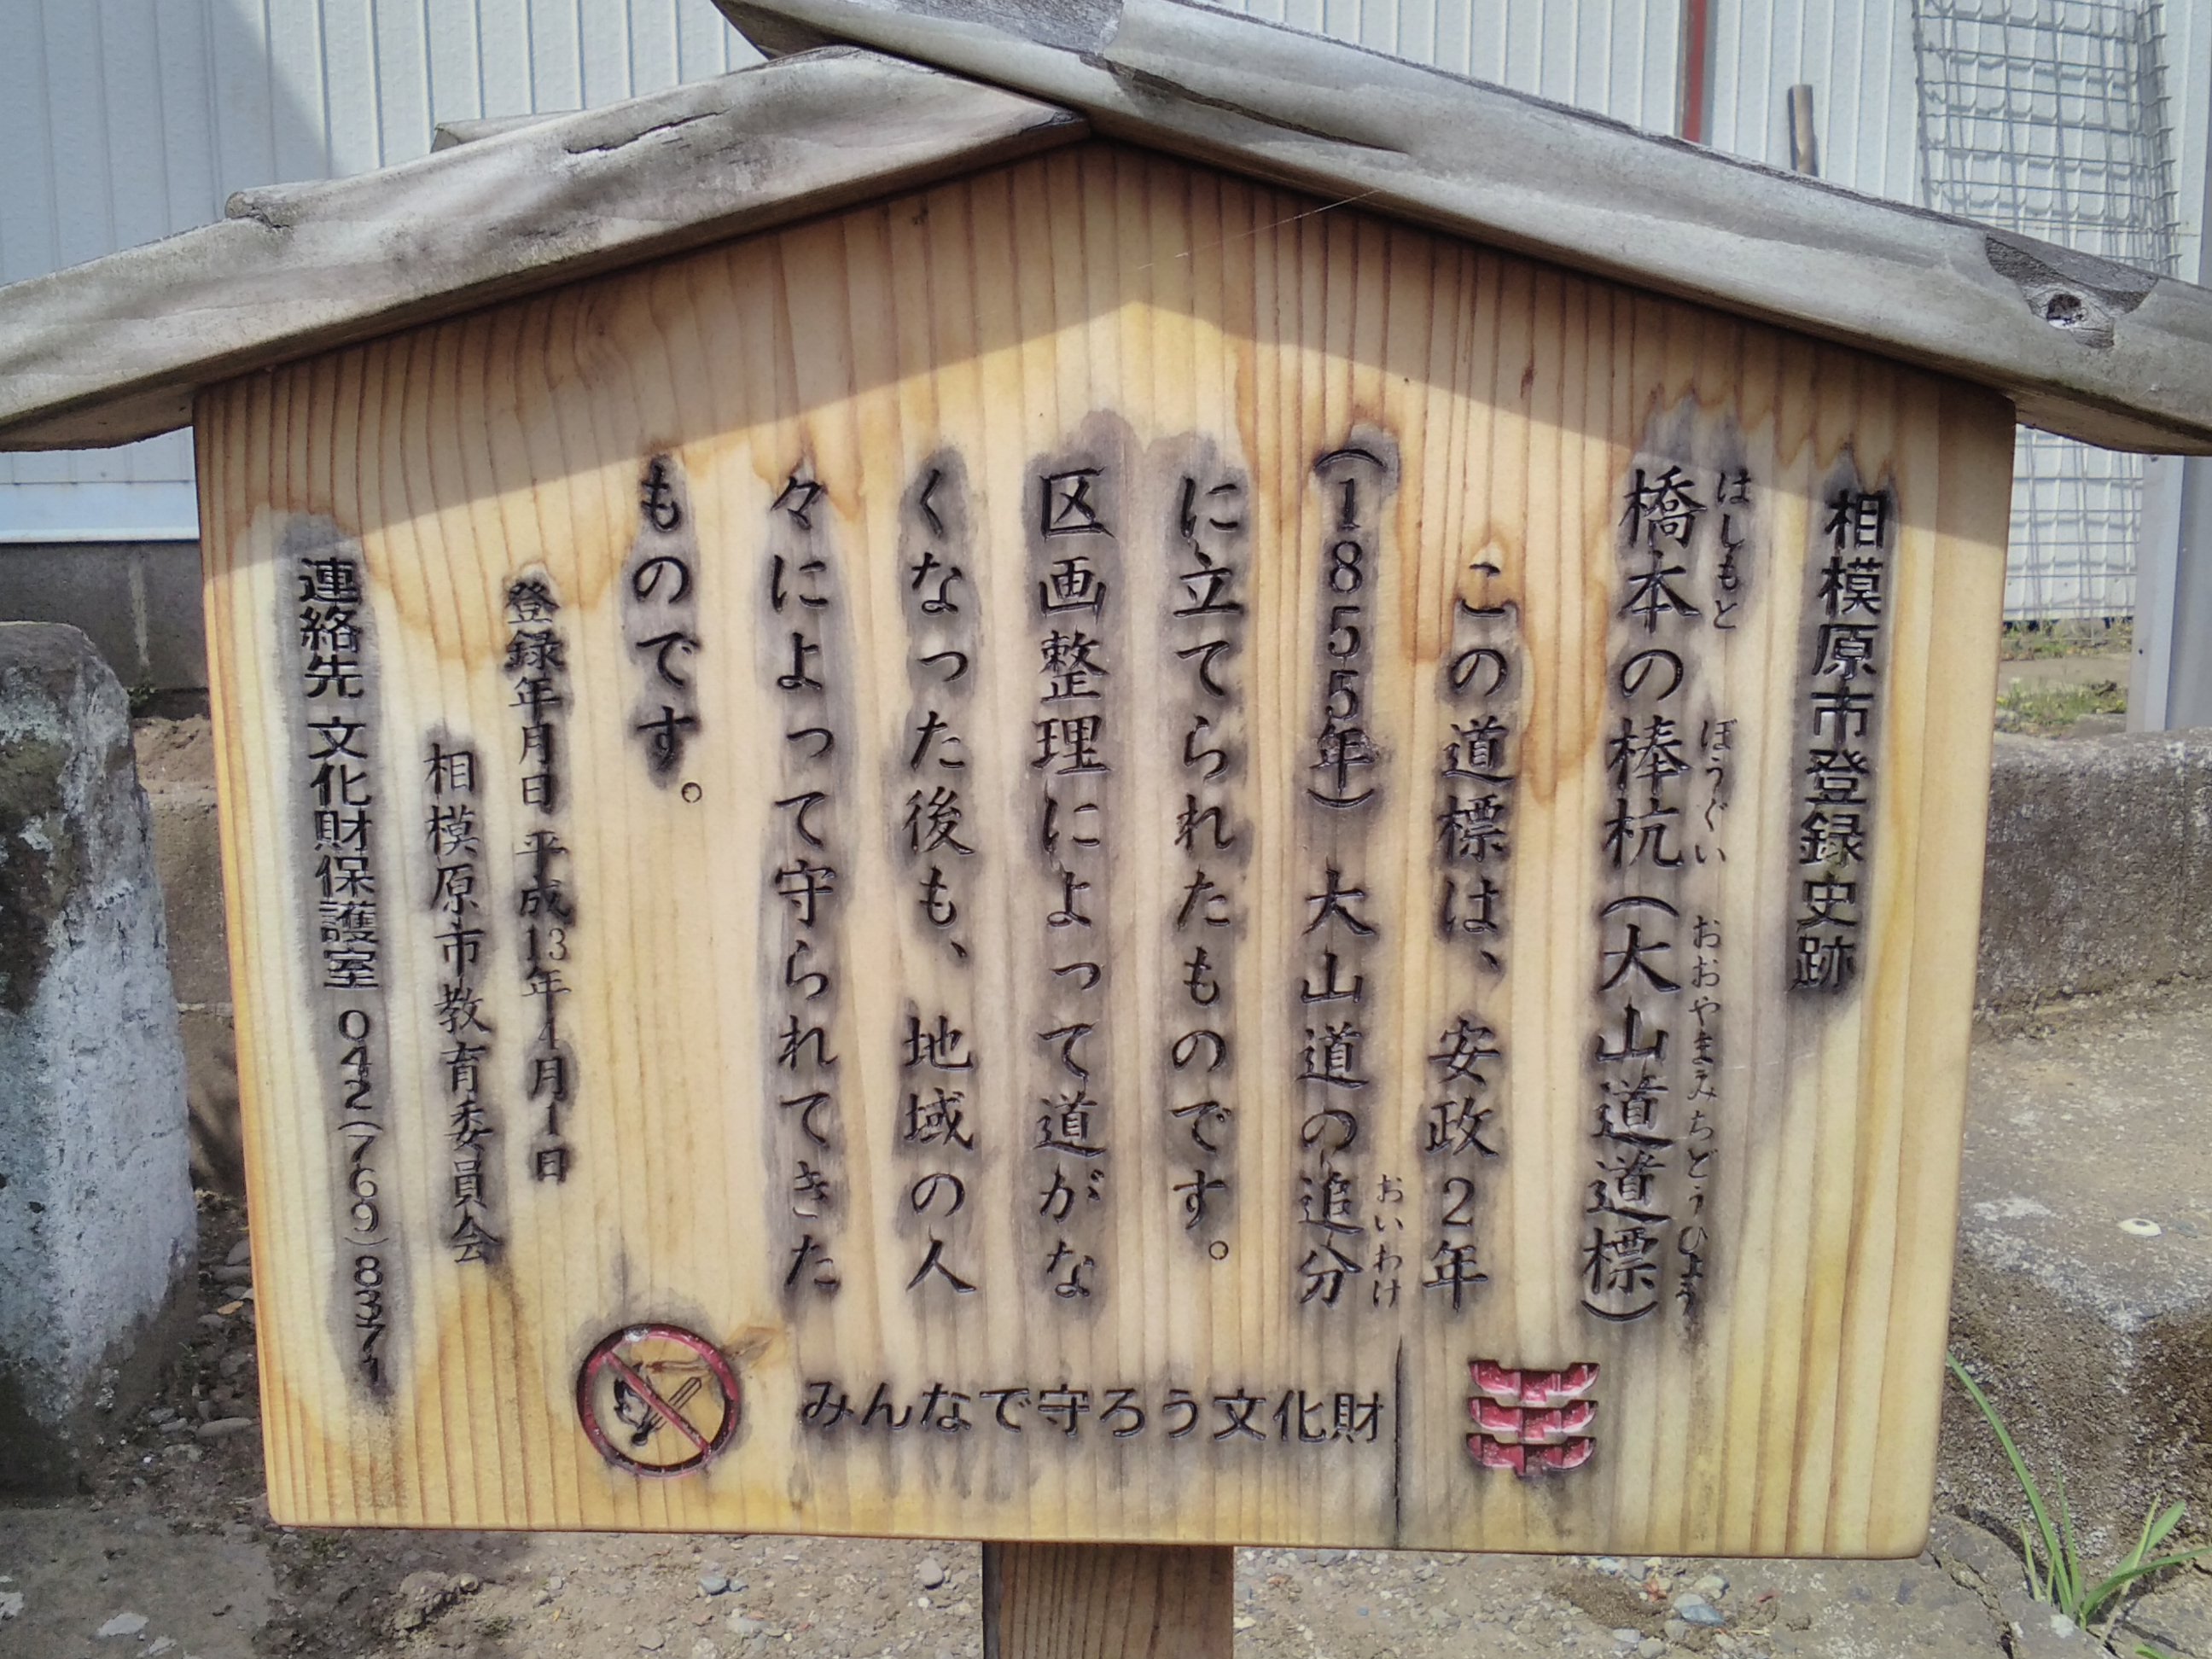 相模原市登録史跡
はしもと ぼうぐい おおやまみちどうひょう
橋本の棒杭(大山道道標)
この道標は、安政2年
(1855年)大山道の追分
おいわけ
に立てられたものです。
区画整理によって道がな
くなった後も、地域の人
々によって守られてきた
ものです。
登録年月日 平成13年4月1日
相模原市教育委員会
連絡先 文化財保護室 042(769)8371
みんなで守ろう文化財